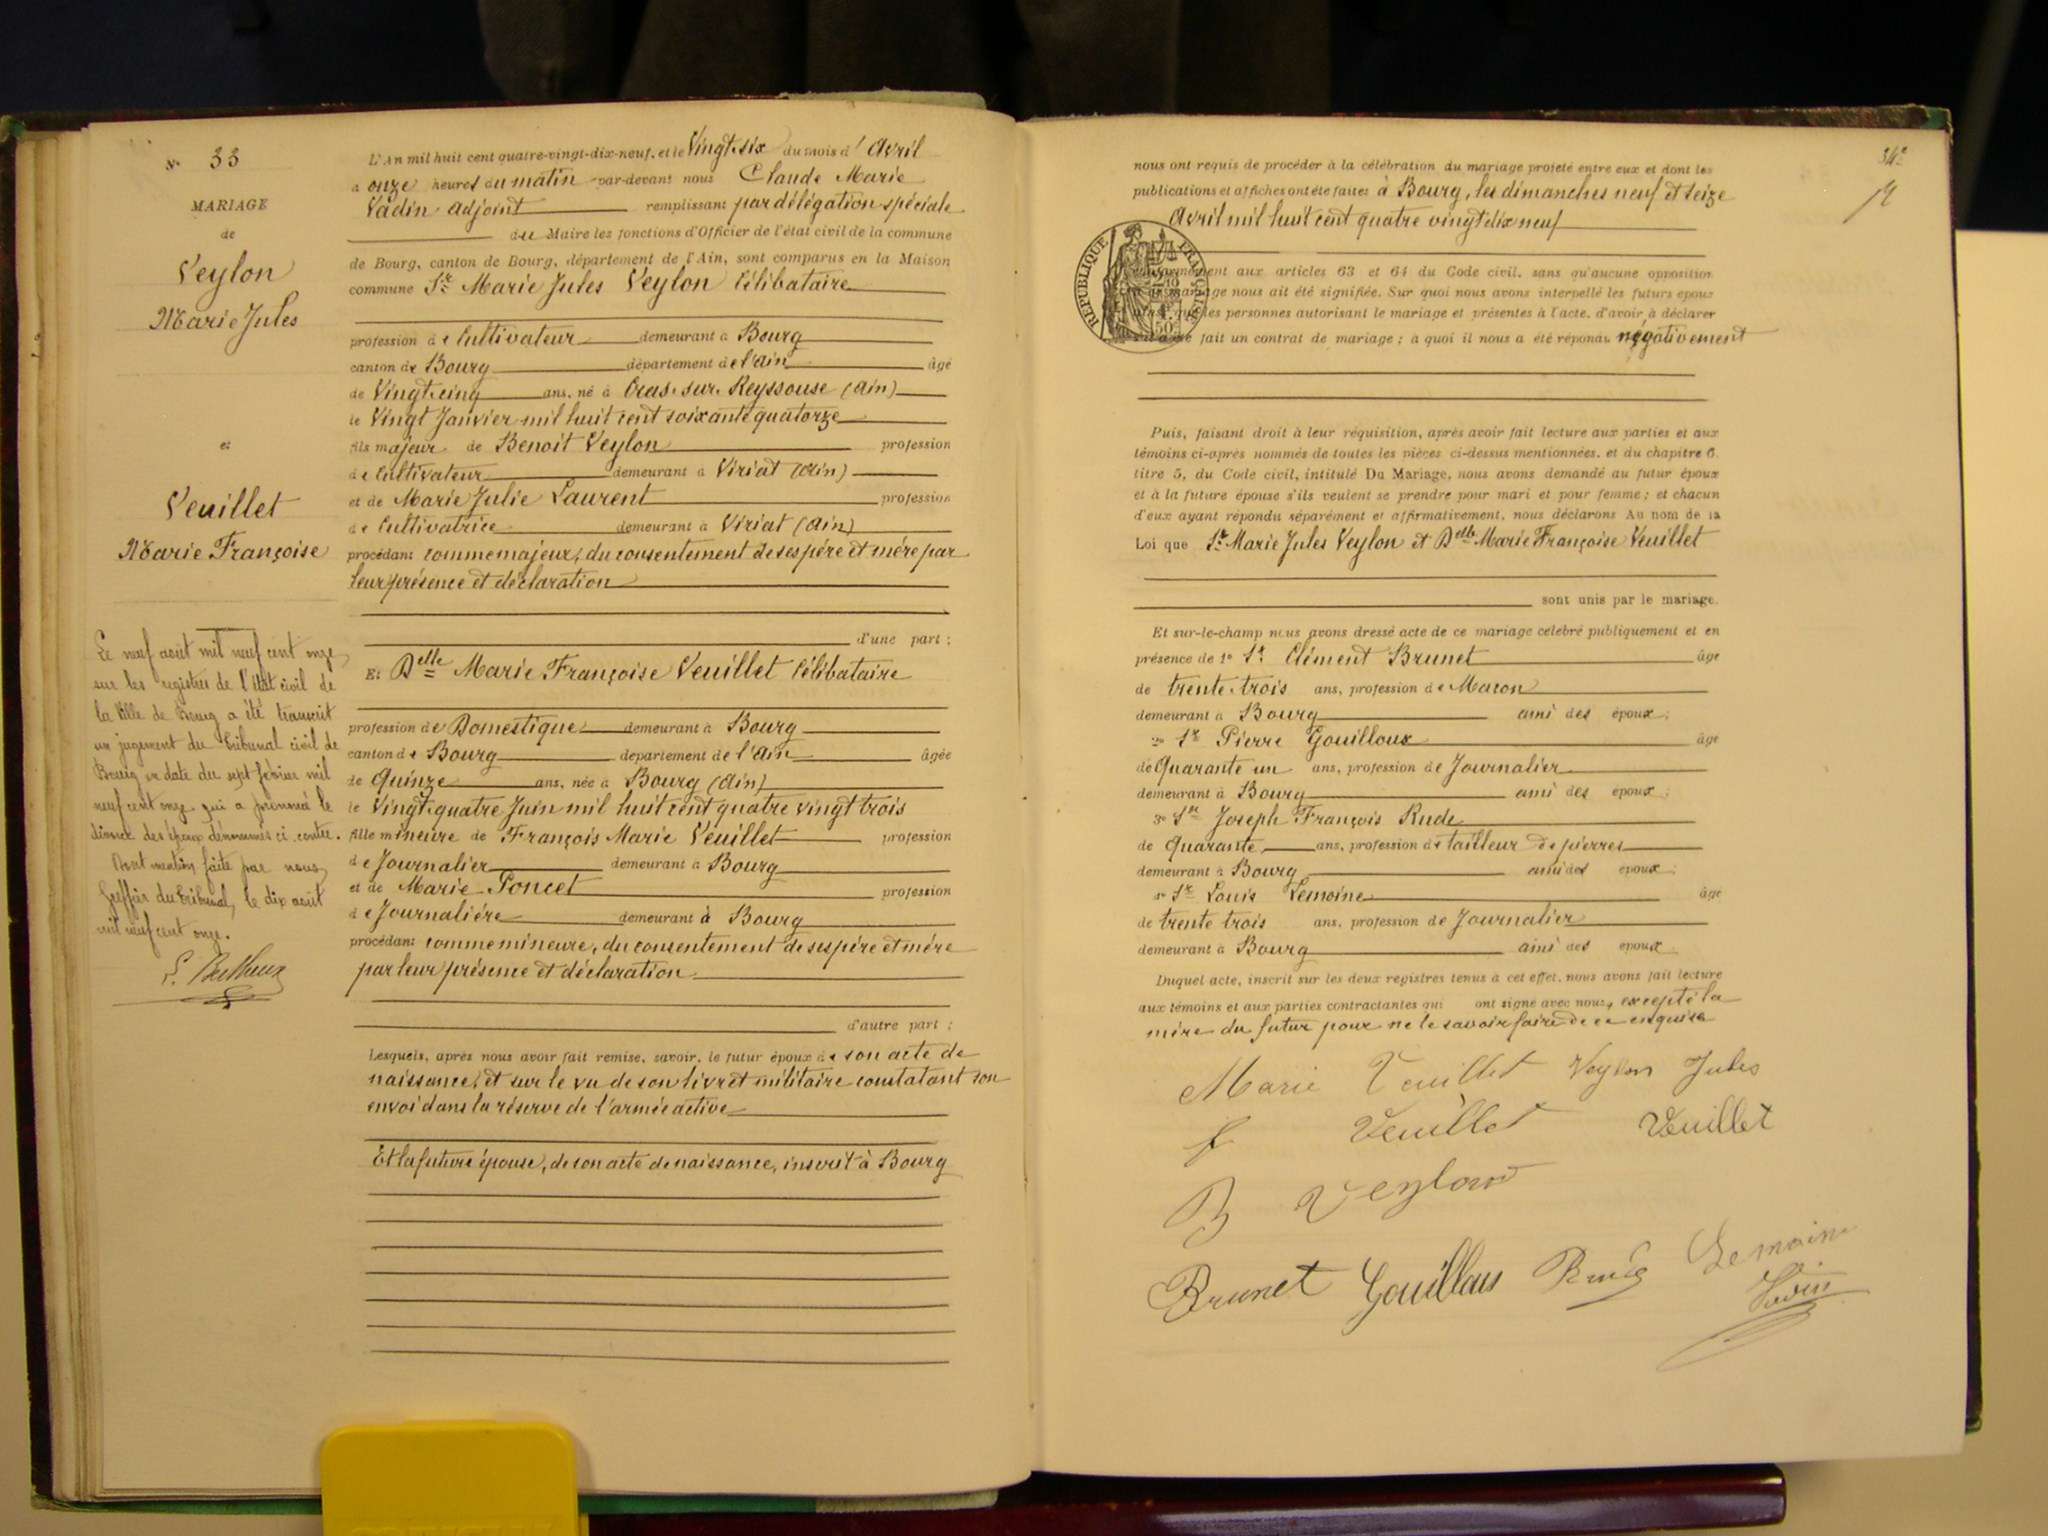 N° 33
MARIAGE
de
Veylon
Marie Jules
et
Veuillet
Marie Françoise
Le neuf août mil neuf cent onze,
sur les registres de l'état civil de
la Ville de Bourg a été transcrit
un jugement du Tribunal civil de
Bourg en date du sept février mil
neuf cent onze qui a prononcé le
divorce des époux dénommés ci-contre.
Dont mention faite par nous,
Greffier du Tribunal, le dix août
mil neuf cent onze.
L'An mil huit cent quatre-vingt-dix-neuf, et le Vingt-six du mois d'Avril
à onze heures du matin par-devant nous Claude Marie
Vadin adjoint remplissant par délégation spéciale
du Maire les fonctions d'Officier de l'état civil de la commune
de Bourg, canton de Bourg, département de l'Ain, sont comparus en la Maison
commune Sr Marie Jules Veylon Célibataire
profession de Cultivateur demeurant à Bourg
canton de Bourg département de l'Ain âgé
de Vingt-cinq ans, né à Cras-sur-Reyssouse (Ain)
le Vingt Janvier mil huit cent soixante quatorze
fils majeur de Benoit Veylon profession
de Cultivateur demeurant à Viriat (Ain)
et de Marie Julie Laurent profession
de Cultivatrice demeurant à Viriat (Ain)
procédant comme majeur, du consentement de ses père et mère par
leur présence et déclaration
d'une part ;
Et Delle Marie Françoise Veuillet Célibataire
profession de Domestique demeurant à Bourg
canton de Bourg département de l'Ain âgée
de Quinze ans, née à Bourg (Ain)
le Vingt-quatre Juin mil huit cent quatre vingt trois
fille mineure de François Marie Veuillet profession
de Journalier demeurant à Bourg
et de Marie Poncet profession
de Journalière demeurant à Bourg
procédant comme mineure, du consentement de ses père et mère
par leur présence et déclaration
d'autre part ;
Lesquels, après nous avoir fait remise, savoir, le futur époux de son acte de
naissance, et sur le vu de son livret militaire constatant son
envoi dans la réserve de l'armée active
Et la future épouse, de son acte de naissance, inscrit à Bourg
34e
nous ont requis de procéder à la célébration du mariage projeté entre eux et dont les
publications et affiches ont été faites à Bourg, les dimanches neuf et seize
Avril mil huit cent quatre vingt dix neuf
RÉPUBLIQUE FRANÇAISE
50c
conformément aux articles 63 et 64 du Code civil, sans qu'aucune opposition
mariage nous ait été signifiée. Sur quoi nous avons interpellé les futurs époux
ainsi que les personnes autorisant le mariage et présentes à l'acte, d'avoir à déclarer
fait un contrat de mariage ; à quoi il nous a été répondu négativement
Puis, faisant droit à leur réquisition, après avoir fait lecture aux parties et aux
témoins ci-après nommés de toutes les pièces ci-dessus mentionnées, et du chapitre 6,
titre 5, du Code civil, intitulé Du Mariage, nous avons demandé au futur époux
et à la future épouse s'ils veulent se prendre pour mari et pour femme ; et chacun
d'eux ayant répondu séparément et affirmativement, nous déclarons Au nom de la
Loi que Sr Marie Jules Veylon et Delle Marie Françoise Veuillet
sont unis par le mariage.
Et sur-le-champ nous avons dressé acte de ce mariage célébré publiquement et en
présence de 1° Sr Clément Brunet âgé
de trente-trois ans, profession de Maçon
demeurant à Bourg ami des époux ;
2° Sr Pierre Gouilloux âgé
de Quarante un ans, profession de Journalier
demeurant à Bourg ami des époux ;
3° Sr Joseph François Rude
de Quarante ans, profession de tailleur de pierres
demeurant à Bourg ami des époux ;
4° Sr Louis Lemoine âgé
de trente trois ans, profession de Journalier
demeurant à Bourg ami des époux
Duquel acte, inscrit sur les deux registres tenus à cet effet, nous avons fait lecture
aux témoins et aux parties contractantes qui ont signé avec nous, excepté la
mère du futur pour ne le savoir faire de ce enquise
Marie Veuillet Veylon Jules
f Veuillet Veuillet
B Veylon
Brunet Gouilloux Rude Lemoine
Vadin